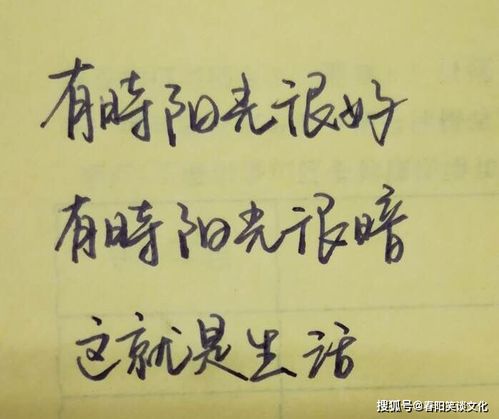 有時阳光很好
有時阳光很暗
这就是生活
搜狐号@春阳笑谈文化